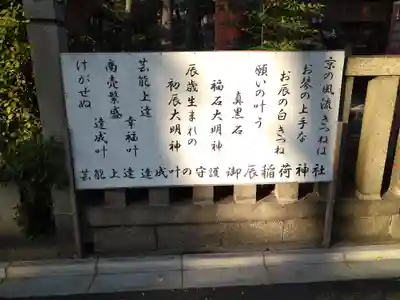 京の風流きつねは
お琴の上手な
お辰の白きつね
願いの叶う
真黒石
福石大明神
辰歳生まれの
初辰大明神
芸能上達 幸福叶
商売繁盛 達成叶
けがせぬ
芸能上達達成叶の守護 御辰稲荷神社